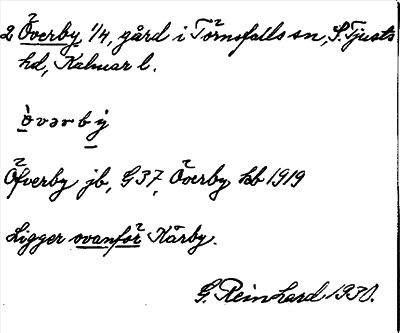 2 Överby 1/4, gård i Törnsfalls sn, S. Tjusts
hd, Kalmar l.
ò̱vərbẏ̱
Öfverby jb, G 37, Överby kb 1919
Ligger ovanför Kärby.
G. Reinhard 1930.